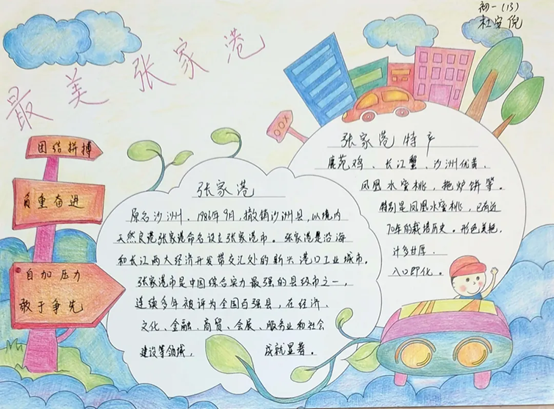 初一(13)
杜安倪
最美张家港
团结拼搏
自加压力
敢于争先
张家港
原名沙洲, 1986年9月, 撤销沙洲县, 以境内
天然良港张家港命名设立张家港市。张家港是沿海
和长江两大经济开发带交汇处的新兴港口工业城市。
张家港市是中国综合实力最强的县级市之一,
连续多年被评为全国百强县, 在经济、
文化、金融、商贸、会展、服务业和社会
建设等领域, 成就显著。
张家港特产
鹿苑鸡、长江蟹、沙洲优黄、
凤凰水蜜桃、拖炉饼等。
特别是凤凰水蜜桃, 已有近
70年的栽培历史。形色美艳,
汁多味厚,
入口即化。